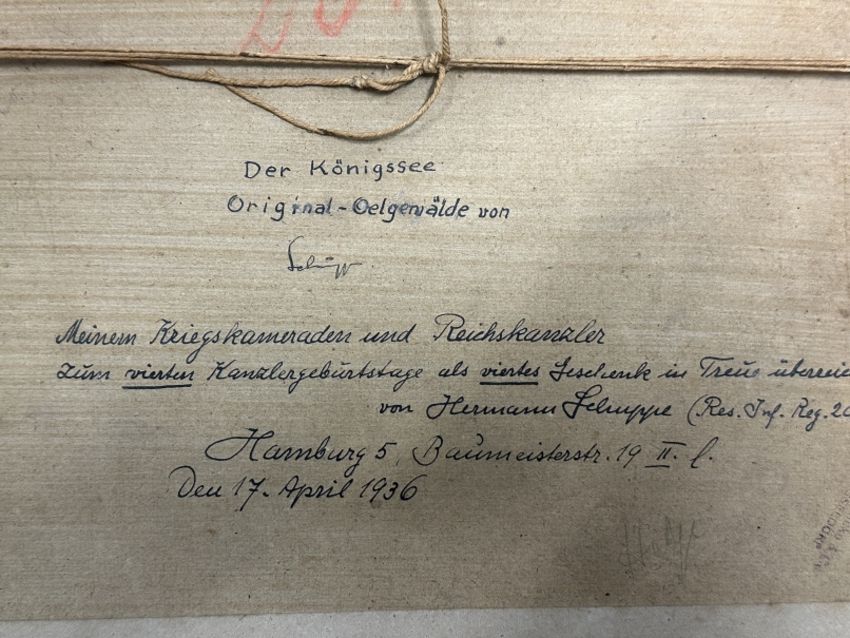 Der Königssee
Original-Oelgemälde von
Meinem Kriegskameraden und Reichskanzler
zum vierten Kanzlergeburtstage als viertes Geschenk in Treue überreic
von Hermann Schuppe (Res. Inf. Reg. 20
Hamburg 5, Baumeisterstr. 19 II. l.
Den 17. April 1936